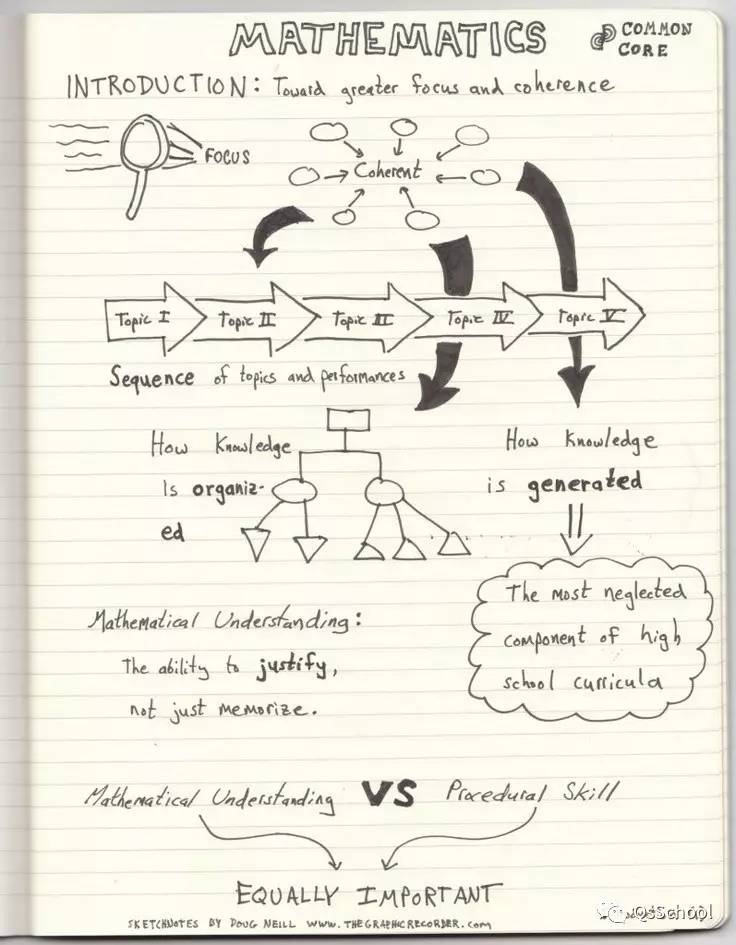 MATHEMATICS
COMMON
CORE
INTRODUCTION: Toward greater focus and coherence
FOCUS
Coherent
Topic I
Topic II
Topic III
Topic IV
Topic V
Sequence of topics and performances
How Knowledge
Is organiz-
ed
How Knowledge
is generated
The most neglected
component of high
school curricula
Mathematical Understanding:
The ability to justify,
not just memorize.
Mathematical Understanding VS Procedural Skill
EQUALLY IMPORTANT
SKETCHNOTES BY DOUG NEILL WWW.THEGRAPHICRECORDER.COM
QsSchool